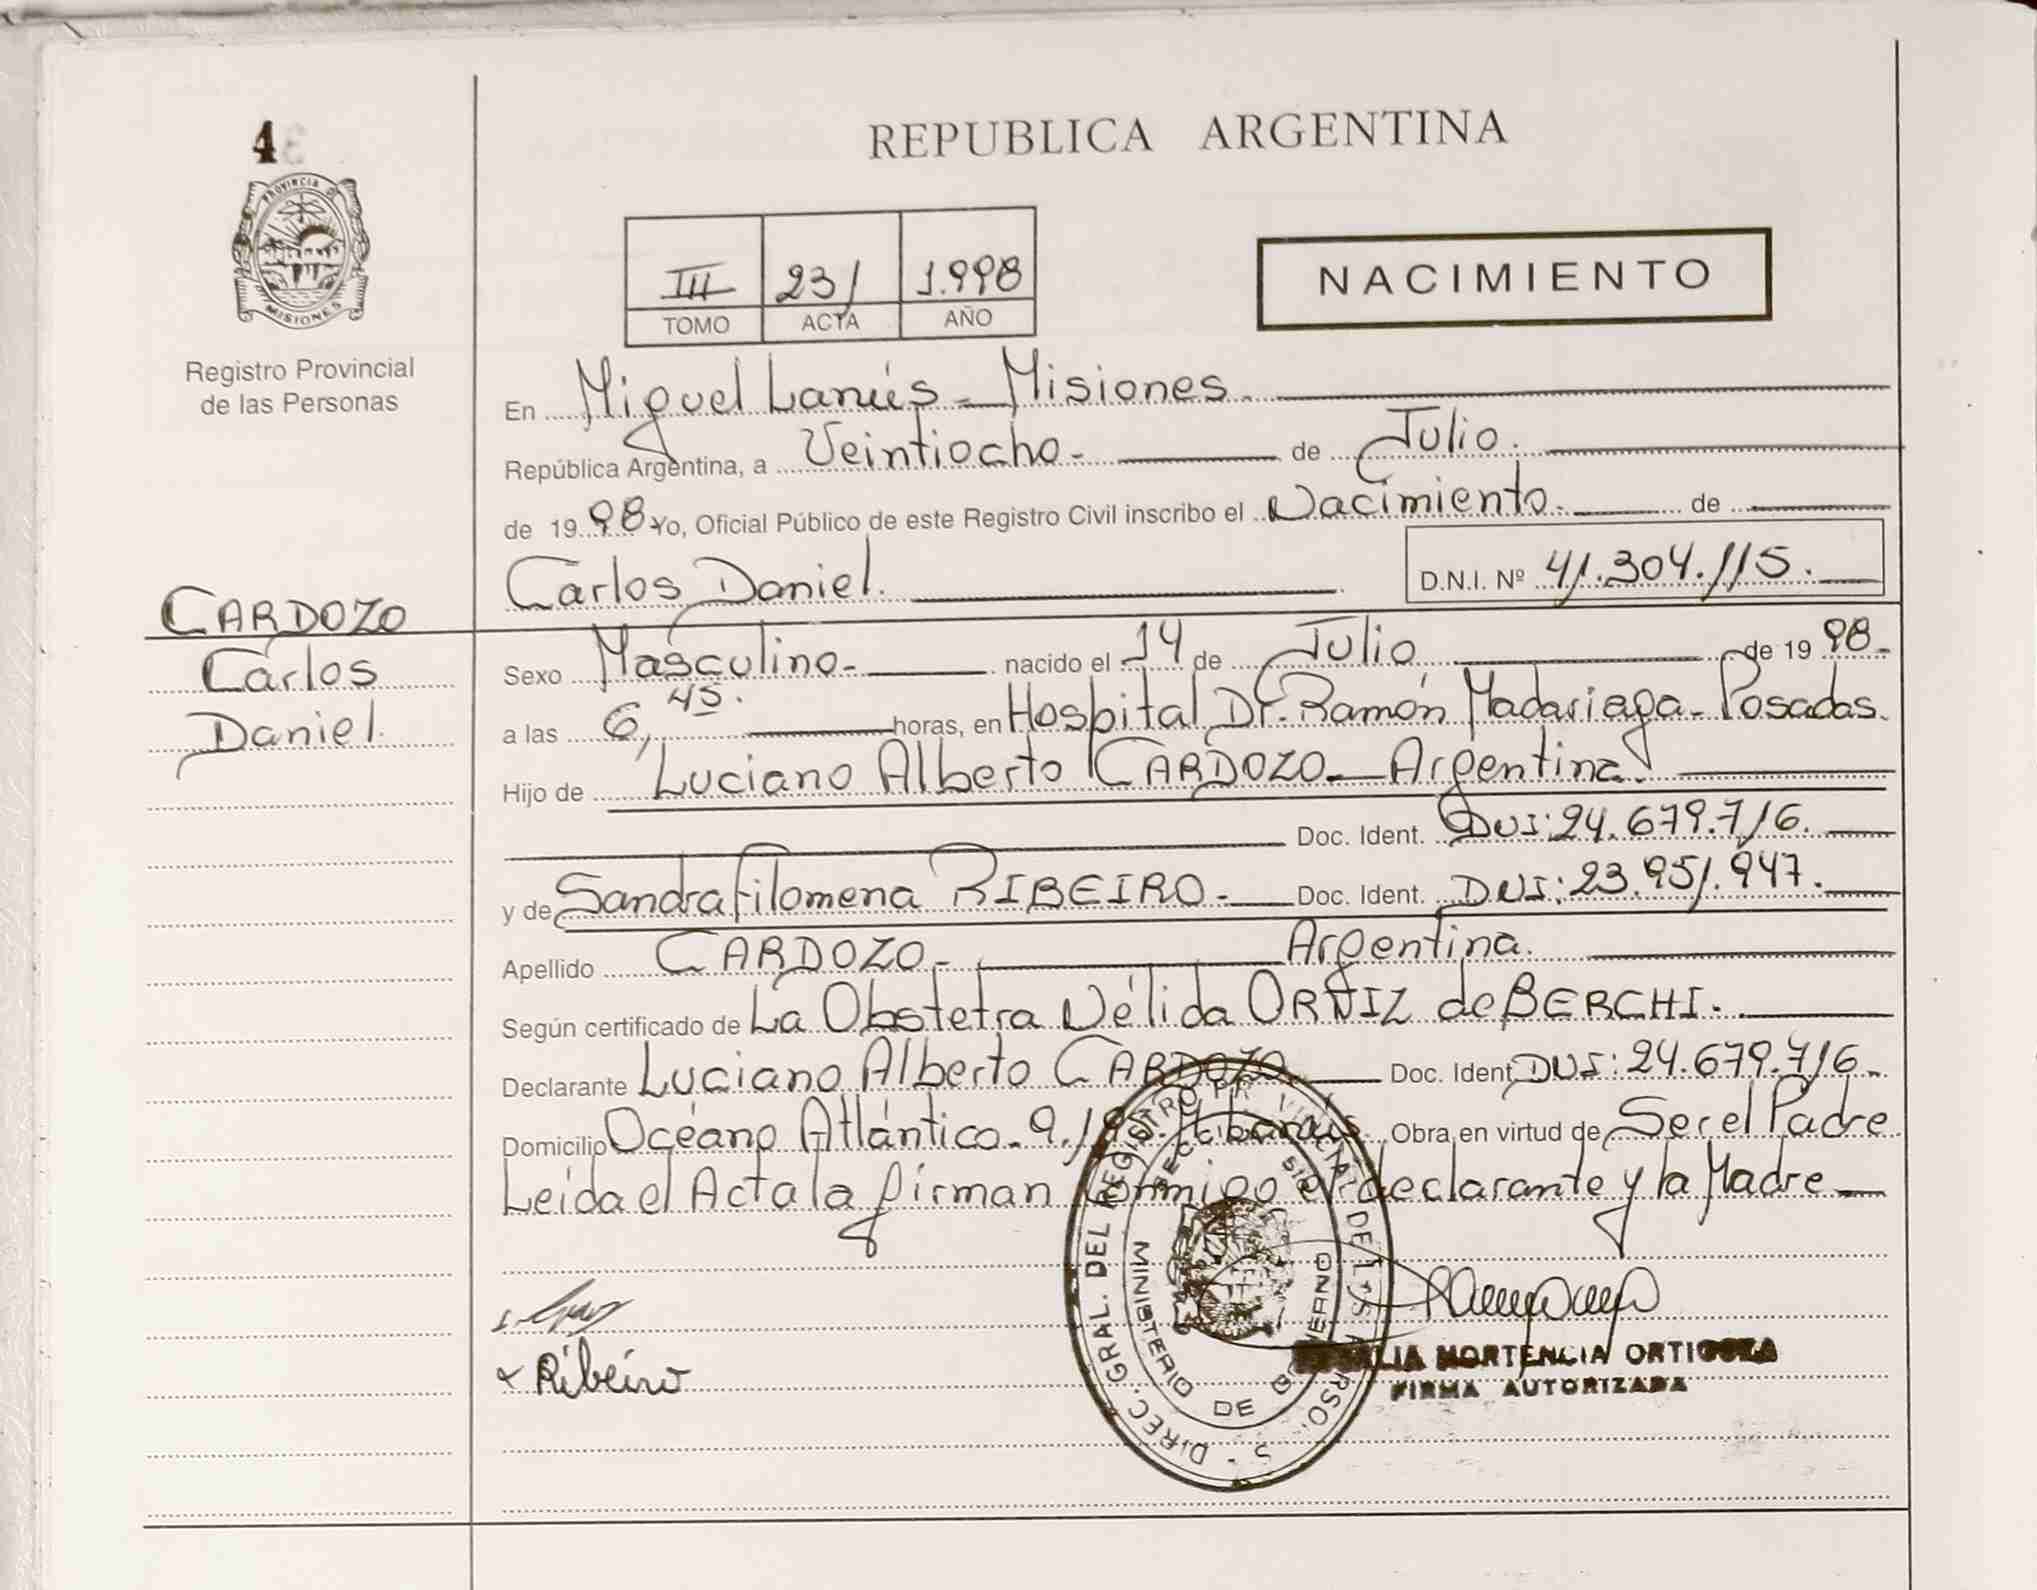 4
PROVINCIA DE
MISIONES
Registro Provincial
de las Personas
REPUBLICA ARGENTINA
III 231 1.998
TOMO ACTA AÑO
NACIMIENTO
En Miguel Lanús - Misiones.
República Argentina, a Veintiocho - de Julio.
de 1998 Yo, Oficial Público de este Registro Civil inscribo el Nacimiento - de
Carlos Daniel. D.N.I. Nº 41.304.115.
CARDOZO
Carlos
Daniel.
Sexo Masculino - nacido el 14 de Julio de 1998 -
a las 6,45. horas, en Hospital Dr. Ramón Madariaga - Posadas.
Hijo de Luciano Alberto CARDOZO - Argentina.
Doc. Ident. DNI: 24.679.716.
y de Sandra Filomena RIBEIRO - Doc. Ident. DNI: 23.951.947.
Apellido CARDOZO - Argentina.
Según certificado de La Obstetra Nélida ORTIZ de BERCHI.
Declarante Luciano Alberto CARDOZO Doc. Ident DNI: 24.679.716 -
Domicilio Océano Atlántico - Obra en virtud de Ser el Padre
Leída el Acta la firman conmigo el declarante y la Madre -
DIREC. GRAL. DEL REGISTRO
MINISTERIO DE GOBIERNO
x Ribeiro
HORTENCIA ORTIGOZA
FIRMA AUTORIZADA